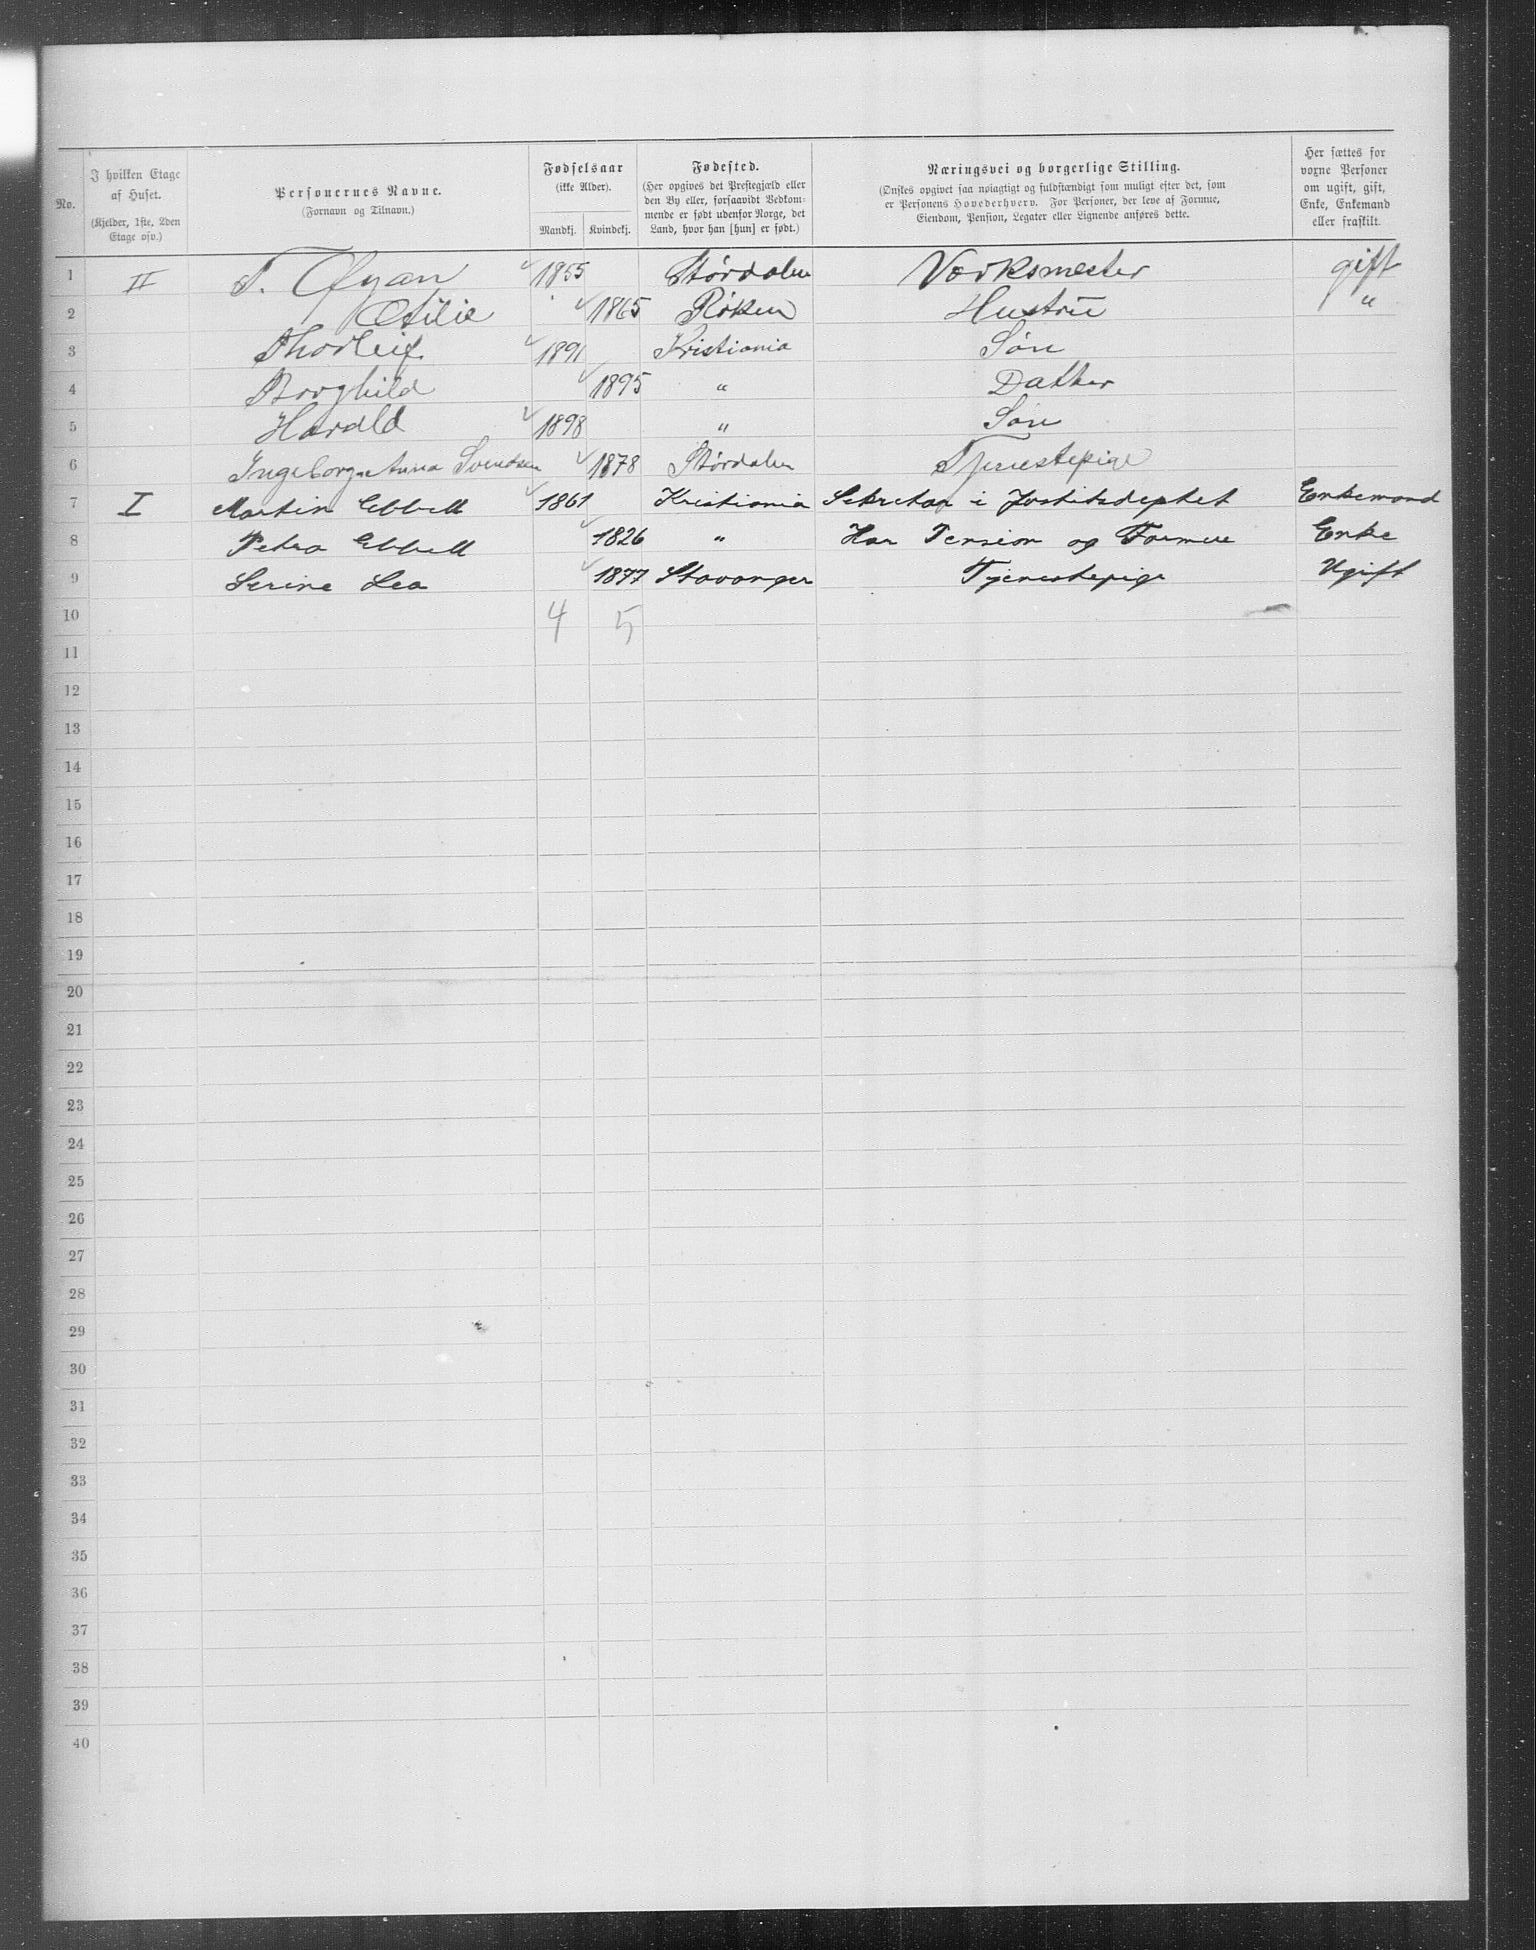 No.
I hvilken Etage af Huset.
(Kjelder, 1ste, 2den Etage osv.)
Personernes Navne.
(Fornavn og Tilnavn.)
Fødselsaar
(ikke Alder).
Mandkj. Kvindekj.
Fødested.
(Her opgives det Prestegjæld eller
den By eller, forsaavidt Vedkom-
mende er født udenfor Norge, det
Land, hvor han [hun] er født.)
Næringsvei og borgerlige Stilling.
(Ønskes opgivet saa nøiagtigt og fuldstændigt som muligt efter det, som
er Personens Hovederhverv. For Personer, der leve af Formue,
Eiendom, Pension, Legater eller Lignende anføres dette.
Her sættes for
voxne Personer
om ugift, gift,
Enke, Enkemand
eller fraskilt.
1 II T. Øyan 1855 Størdalen Værksmester gift
2 Otilie 1865 Røken Hustru "
3 Thorleif 1891 Kristiania Søn
4 Borghild 1895 " Datter
5 Harald 1898 " Søn
6 Ingeborg Anna Svendsen 1878 Størdalen Tjenestepige
7 I Martin Ebbell 1861 Kristiania Sekretær i Justitsdeptet Enkemand
8 Petra Ebbell 1826 " Har Pension og Formue Enke
9 Serine Lea 1877 Stavanger Tjenestepige Ugift
10 4 5
11
12
13
14
15
16
17
18
19
20
21
22
23
24
25
26
27
28
29
30
31
32
33
34
35
36
37
38
39
40